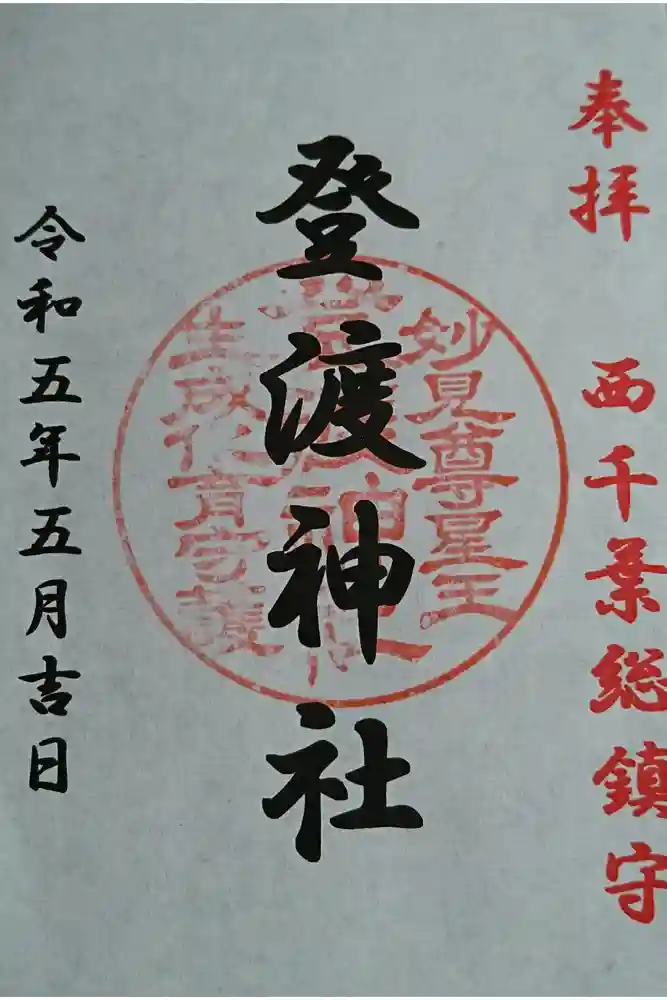 奉拝 西千葉総鎮守
登渡神社
妙見尊星王
登渡神社
生成化育守護
令和五年五月吉日